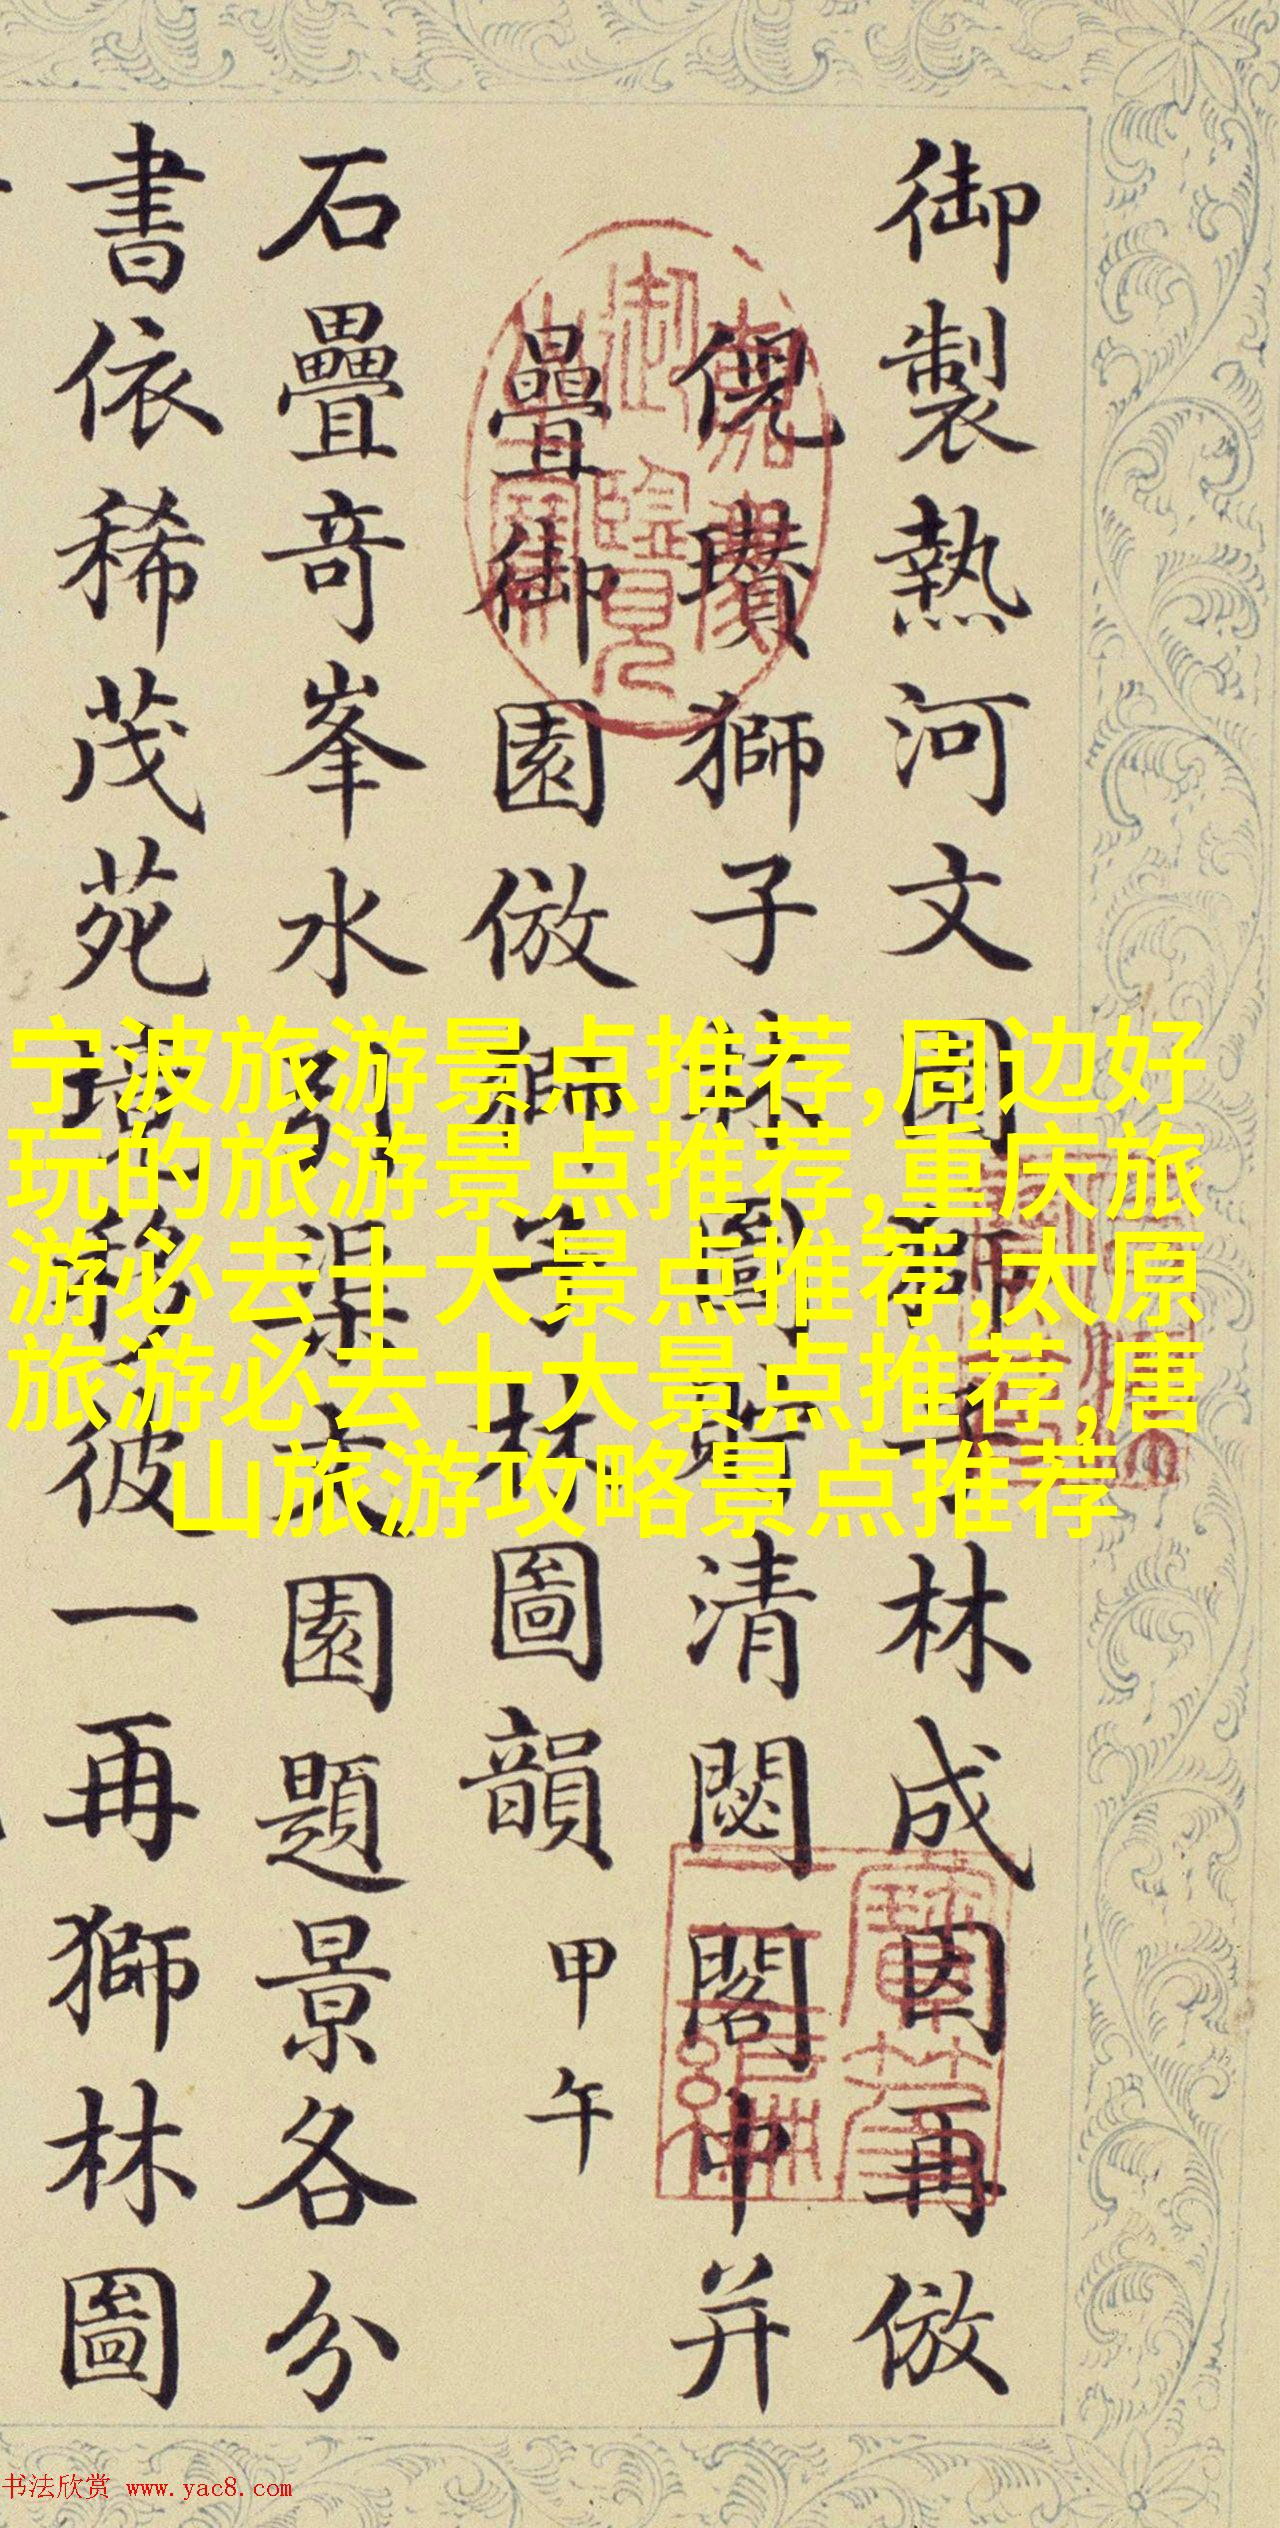 御製熱河文園獅子林成因再倣
倪瓚獅子林圖貯清閟閣中并
曡御園倣獅子林圖韻 甲午
石疊竒峯水引渠文園題景各分
書依稀茂苑境移彼一再獅林圖
宁波旅游景点推荐,周边好
玩的旅游景点推荐,重庆旅
游必去十大景点推荐,太原
旅游必去十大景点推荐,唐
山旅游攻略景点推荐
书法欣赏 www.yac8.com